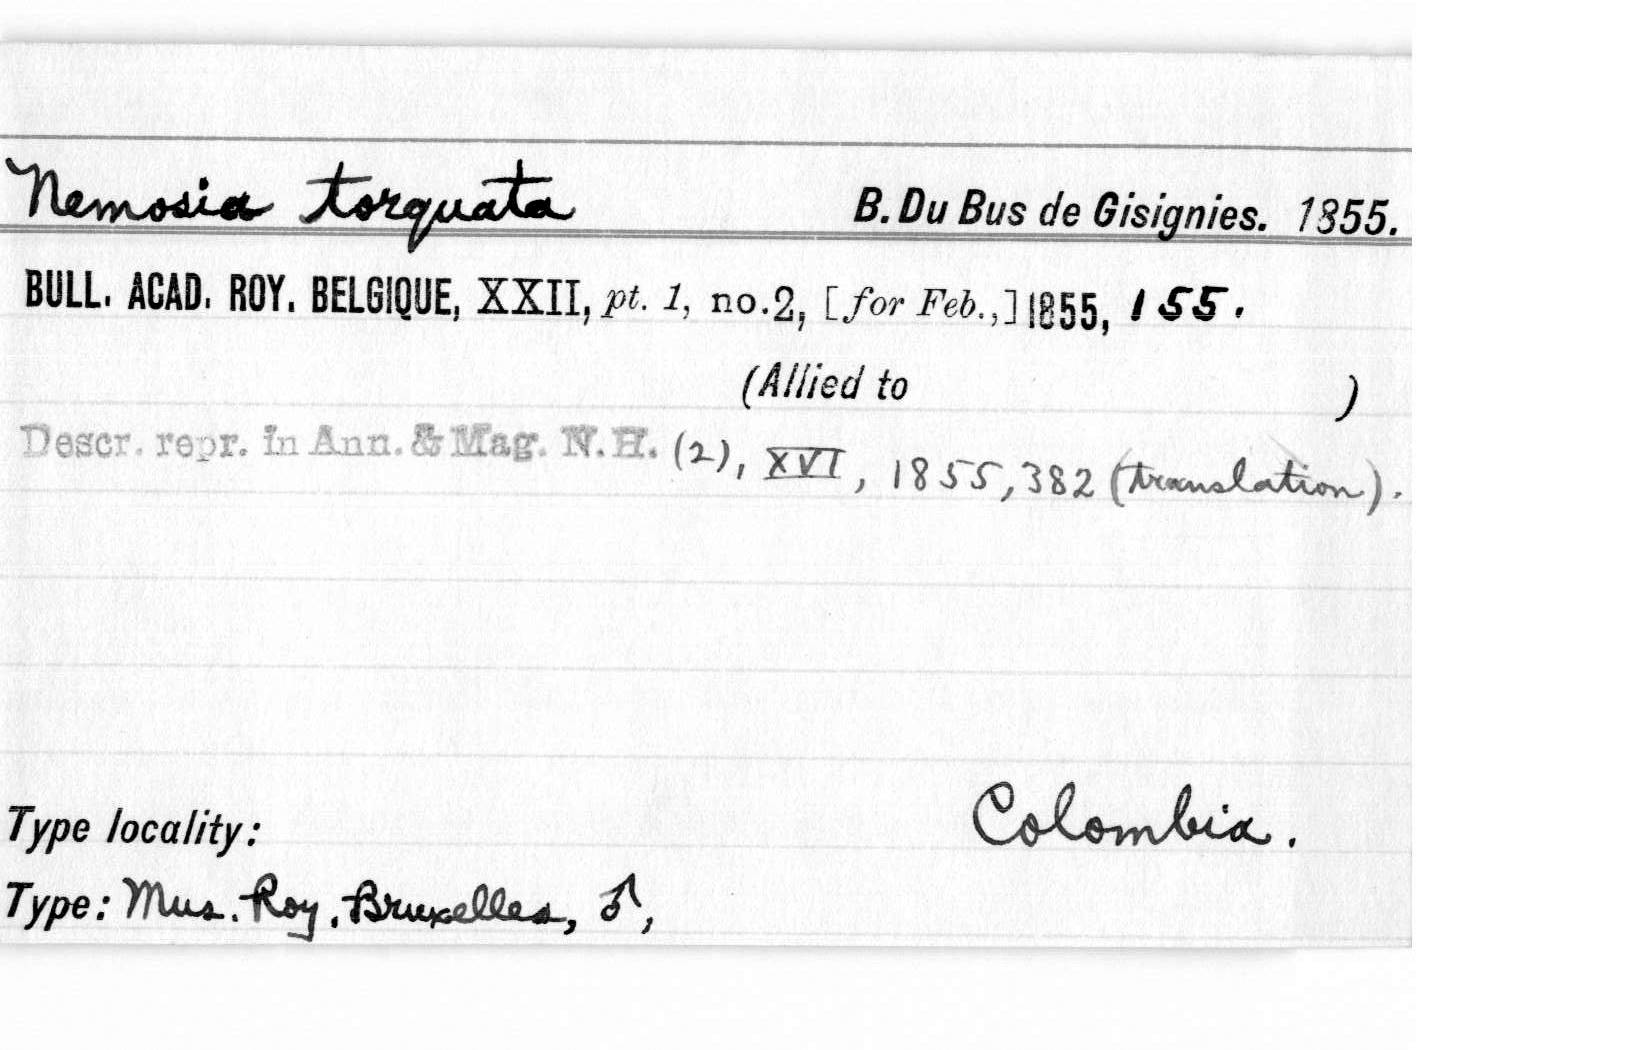 Nemosia torquata B. Du Bus de Gisignies. 1855.
BULL. ACAD. ROY. BELGIQUE, XXII, pt. 1, no.2, [for Feb.,] 1855, 155.
(Allied to )
Descr. repr. in Ann. & Mag. N.H. (2), XVI, 1855, 382 (translation).
Type locality: Colombia.
Type: Mus. Roy. Bruxelles, ♂,